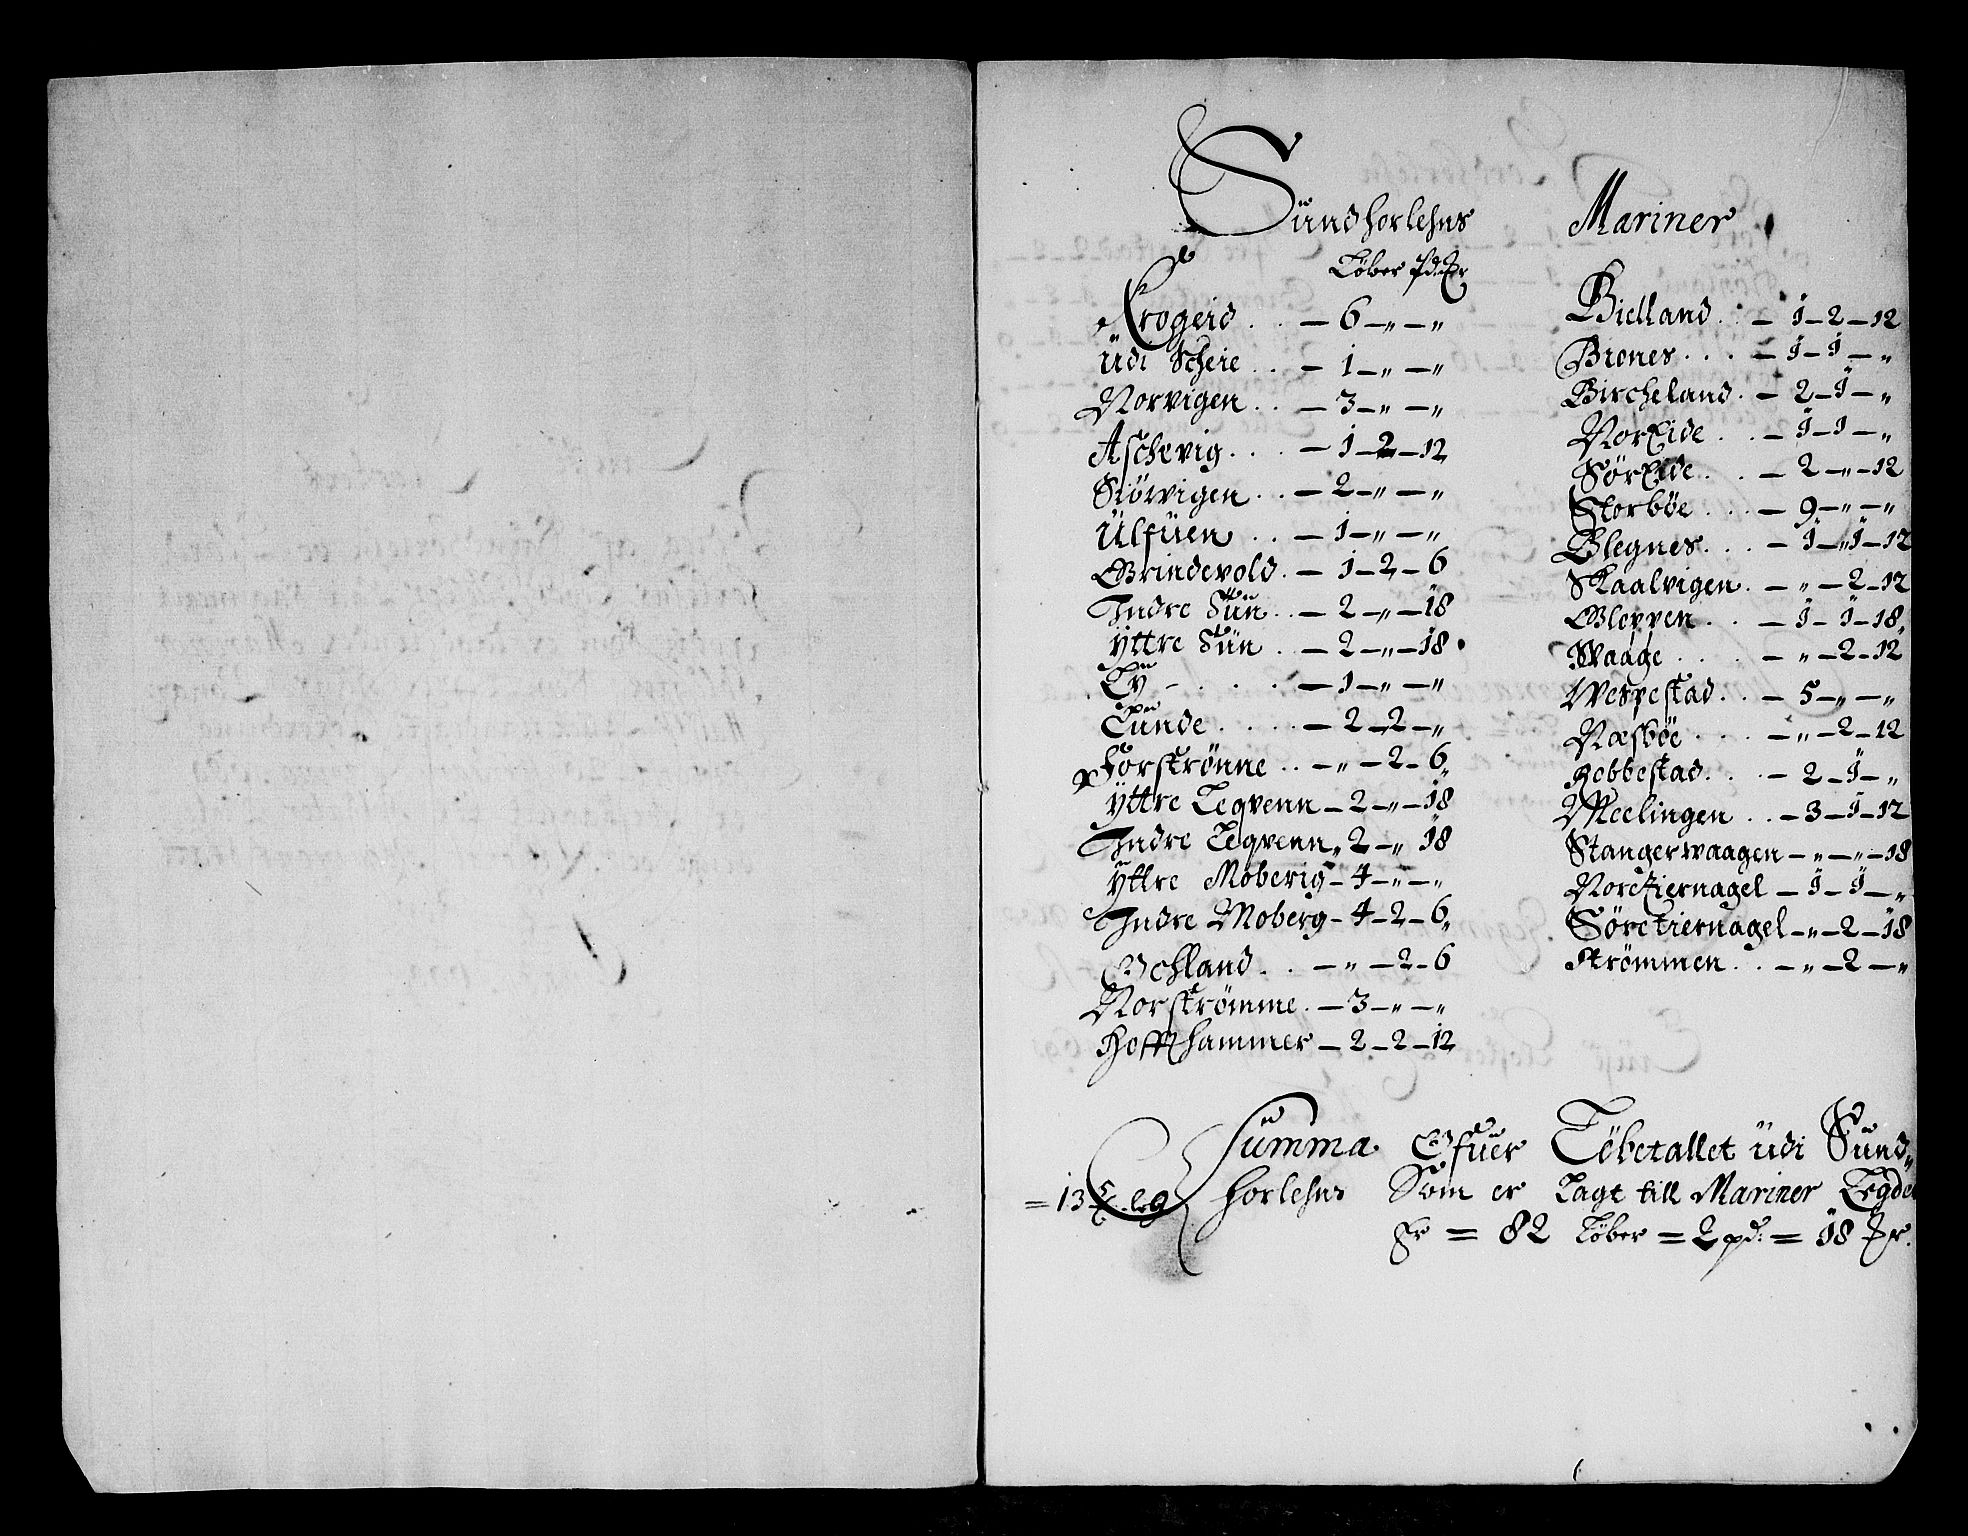 Sündhorlehns Mariner
Löber pd: Mr
Krogeid . . — 6 — „ — „
üdi Scheie . . — 1 — „ — „
Norvigen . . — 3 — „ — „
Aschevig . . . — 1 — 2 — 12
Siörvigen . . — 2 — „ — „
Ülfüen . . — 1 — „ — „
Grindevold . — 1 — 2 — 6
Indre Sün . . — 2 — „ — 18
Yttre Sün . . — 2 — „ — 18
Ly — . . . — 1 — „ — „
Lünde . . . . — 2 — 2 — „
Forströnne . . — „ — 2 — 6
Yttre Teqvenn — 2 — „ — 18
Indre Teqvenn „ 2 — „ 18
Yttre Moberig — 4 — „ — „
Indre Moberg — 4 — 2 — 6
Øchland . . — „ — 2 — 6
Norströmme . — 3 — „ — „
Hoffshammer — 2 — 2 — 12
Bielland . . — 1 — 2 — 12
Biones . . . — 1 — 1 — „
Bircheland . — 2 — 1 — „
NorEide . . — 1 — 1 — „
SörEide . . — 2 — „ — 12
Storböe . . . — 9 — „ — „
Blegnes . . . — 1 — 1 — 12
Skaalvigen . — „ — 2 — 12
Gleppen . . — 1 — 1 — 18
Waage . . . — „ — 2 — 12
Wespestad . . — 5 — „ — „
Næsböe . . . — „ — 2 — 12
Rebbestad . . — 2 — 1 — „
Meelingen . . — 3 — 1 — 12
Stangerwaagen — „ — „ — 18
Noretiernagel — 1 — 1 — „
Söretiernagel — „ — 2 — 18
Strömmen . . — „ — 2 — „
Summa Ofuer Löbetallet üdi Sünd„
horlehns Som er Lagt till Mariner Legde
Er = 82 Löber = 2 pd: = 18 Mr.